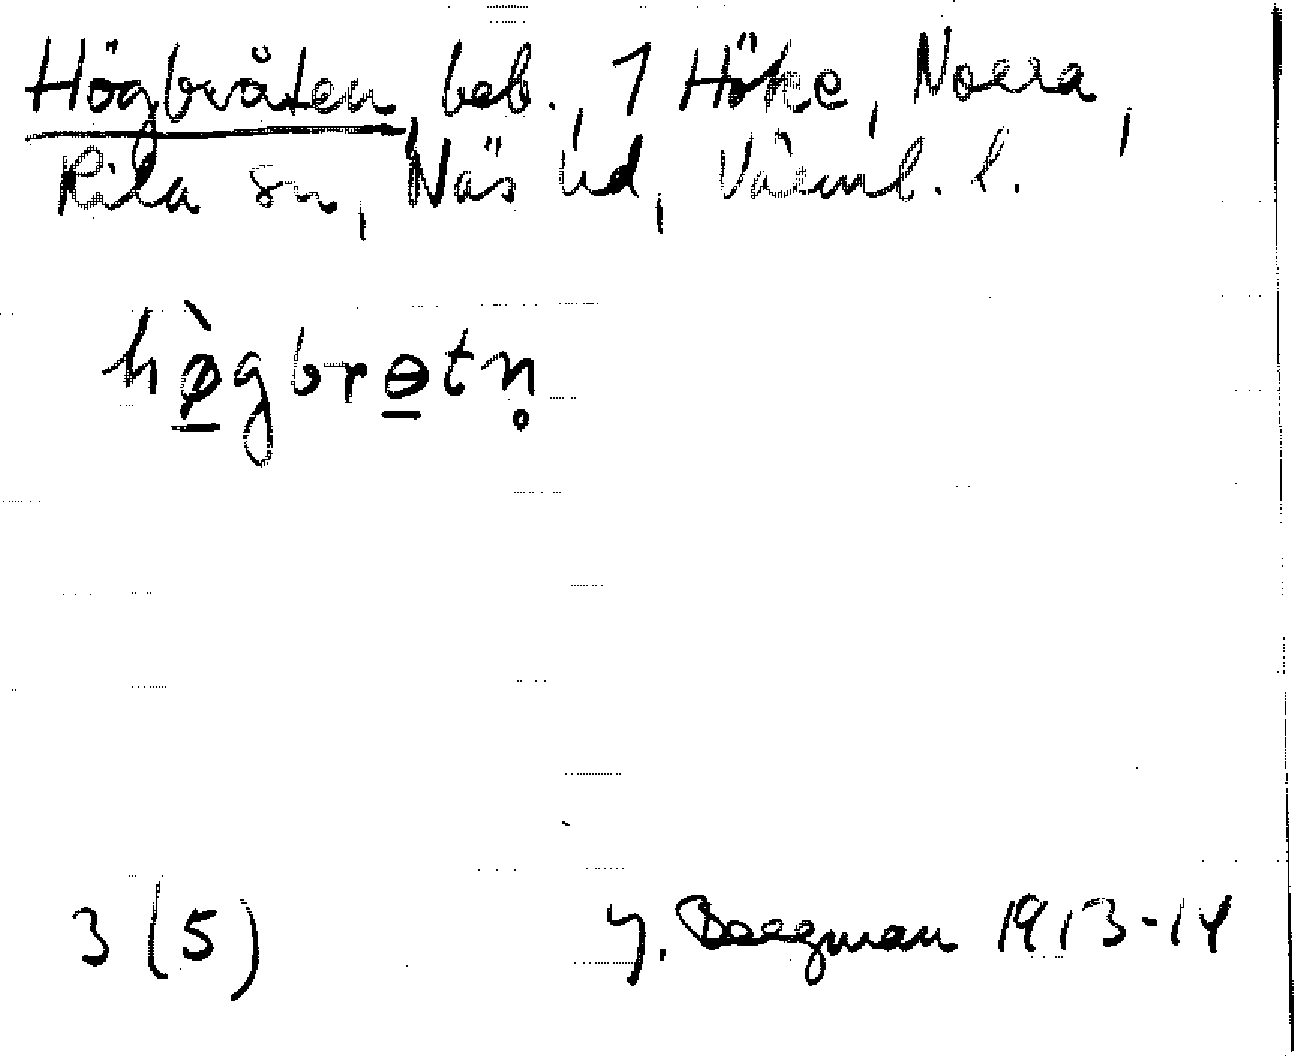 Högbråten, beb., 1 Höke, Norra,
Rila sn, Näs hd, Värml. l.
hø̠̀gbrɵ̠tn̥
3 (5) G. Bergman 1913-14